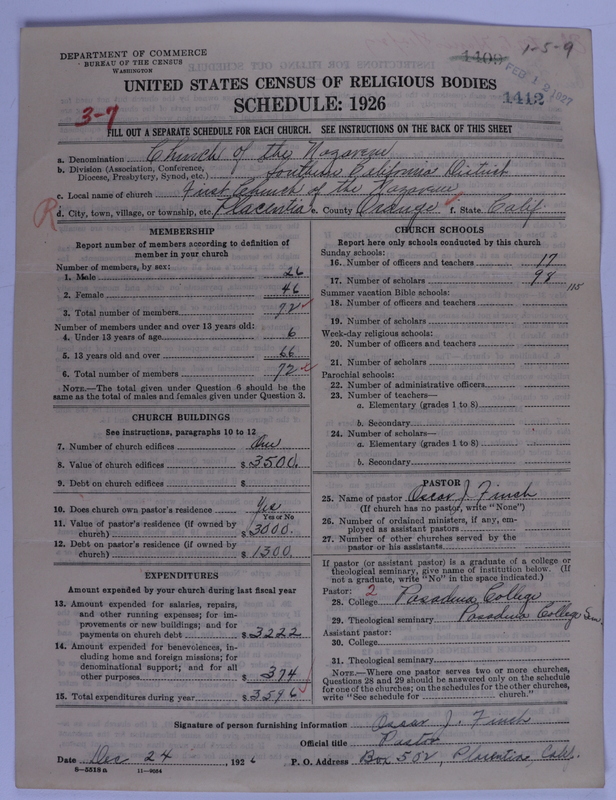 DEPARTMENT OF COMMERCE
BUREAU OF THE CENSUS
WASHINGTON
1409
1-5-9
FEB 19 1927
1412
UNITED STATES CENSUS OF RELIGIOUS BODIES
SCHEDULE: 1926
3-7
FILL OUT A SEPARATE SCHEDULE FOR EACH CHURCH. SEE INSTRUCTIONS ON THE BACK OF THIS SHEET
a. Denomination Church of the Nazarene
b. Division (Association, Conference, Diocese, Presbytery, Synod, etc.) Southern California District
c. Local name of church First Church of the Nazarene
R
d. City, town, village, or township, etc. Placentia e. County Orange f. State Calif.
MEMBERSHIP
Report number of members according to definition of
member in your church
Number of members, by sex:
1. Male 26
2. Female 46
3. Total number of members 72
Number of members under and over 13 years old:
4. Under 13 years of age 6
5. 13 years old and over 66
6. Total number of members 72
NOTE.—The total given under Question 6 should be the
same as the total of males and females given under Question 3.
CHURCH BUILDINGS
See instructions, paragraphs 10 to 12
7. Number of church edifices One
8. Value of church edifices $3500.
9. Debt on church edifices $
10. Does church own pastor's residence Yes
Yes or No
11. Value of pastor's residence (if owned by
church) $3000.
12. Debt on pastor's residence (if owned by
church) $1300.
EXPENDITURES
Amount expended by your church during last fiscal year
13. Amount expended for salaries, repairs,
and other running expenses; for im-
provements or new buildings; and for
payments on church debt $3222
14. Amount expended for benevolences, in-
cluding home and foreign missions; for
denominational support; and for all
other purposes $374
15. Total expenditures during year $3596
CHURCH SCHOOLS
Report here only schools conducted by this church
Sunday schools:
16. Number of officers and teachers 17
17. Number of scholars 98
115
Summer vacation Bible schools:
18. Number of officers and teachers
19. Number of scholars
Week-day religious schools:
20. Number of officers and teachers
21. Number of scholars
Parochial schools:
22. Number of administrative officers
23. Number of teachers—
a. Elementary (grades 1 to 8)
b. Secondary
24. Number of scholars—
a. Elementary (grades 1 to 8)
b. Secondary
PASTOR
25. Name of pastor Oscar J. Finch
(If church has no pastor, write "None")
26. Number of ordained ministers, if any, em-
ployed as assistant pastors
27. Number of other churches served by the
pastor or his assistants
If pastor (or assistant pastor) is a graduate of a college or
theological seminary, give name of institution below. (If
not a graduate, write "No" in the space indicated.)
Pastor: 2
28. College Pasadena College
29. Theological seminary Pasadena College Sem.
Assistant pastor:
30. College
31. Theological seminary
NOTE.—Where one pastor serves two or more churches,
Questions 28 and 29 should be answered only on the schedule
for one of the churches; on the schedules for the other churches,
write "See schedule for church."
Signature of person furnishing information Oscar J. Finch
Official title Pastor
Date Dec 24, 1926 P. O. Address Box 502, Placentia, Calif.
8-5518a 11-9054